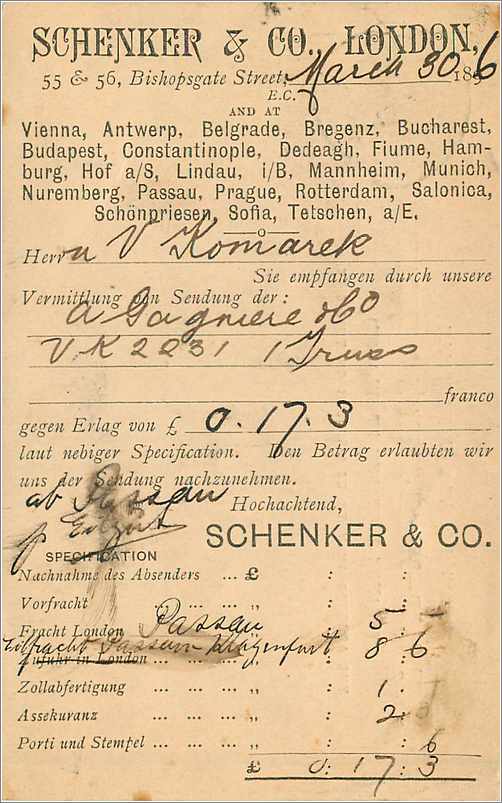 SCHENKER & CO., LONDON,
55 & 56, Bishopsgate Street, March 30 1896
E.C.
AND AT
Vienna, Antwerp, Belgrade, Bregenz, Bucharest,
Budapest, Constantinople, Dedeagh, Fiume, Ham-
burg, Hof a/S, Lindau, i/B, Mannheim, Munich,
Nuremberg, Passau, Prague, Rotterdam, Salonica,
Schönpriesen, Sofia, Tetschen, a/E.
Herrn V Komarek
Sie empfangen durch unsere
Vermittlung von Sendung der:
A Gagniere & Co
VK 2231 1 Truss
franco
gegen Erlag von £ 0.17.3
laut nebiger Specification. Den Betrag erlaubten wir
uns der Sendung nachzunehmen.
ab Passau Hochachtend,
p Eilgut SCHENKER & CO.
SPECIFICATION
Nachnahme des Absenders ... £ : :
Vorfracht ... ... ... „ : :
Fracht London Passau „ : 5 : -
Eilfracht Passau Klagenfurt 8 6
Zufuhr in London ... ... „ : :
Zollabfertigung ... ... „ : 1 : -
Assekuranz ... ... ... „ : 2 :
Porti und Stempel ... ... „ : : 6
£ 0 : 17 : 3